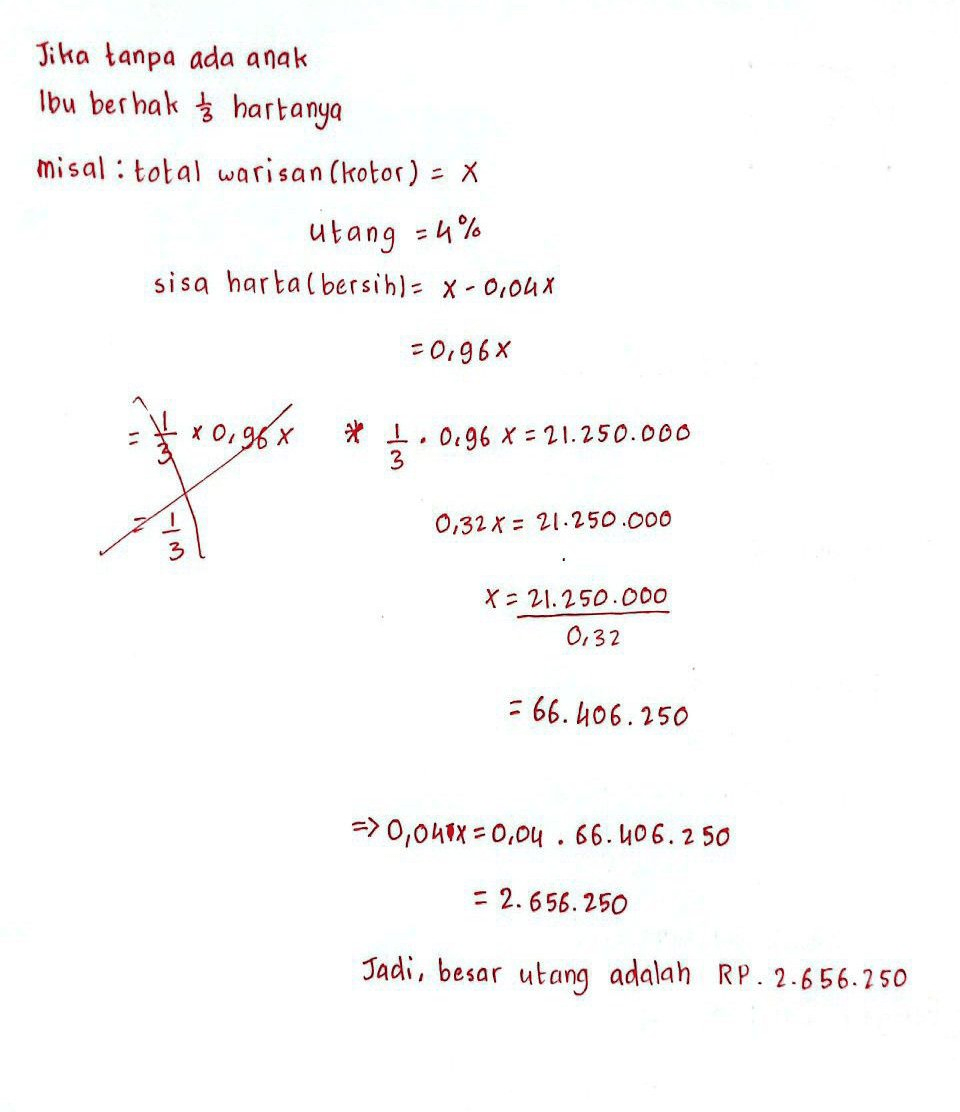 Jika tanpa ada anak
Ibu berhak 1/3 hartanya
misal : total warisan (kotor) = x
utang = 4%
sisa harta (bersih) = x - 0,04x
= 0,96x
= 1/3 × 0,96 x * 1/3 . 0,96 x = 21.250.000
= 1/3
0,32x = 21.250.000
x = 21.250.000
0,32
= 66.406.250
=> 0,04x = 0,04 . 66.406.250
= 2.656.250
Jadi, besar utang adalah RP. 2.656.250